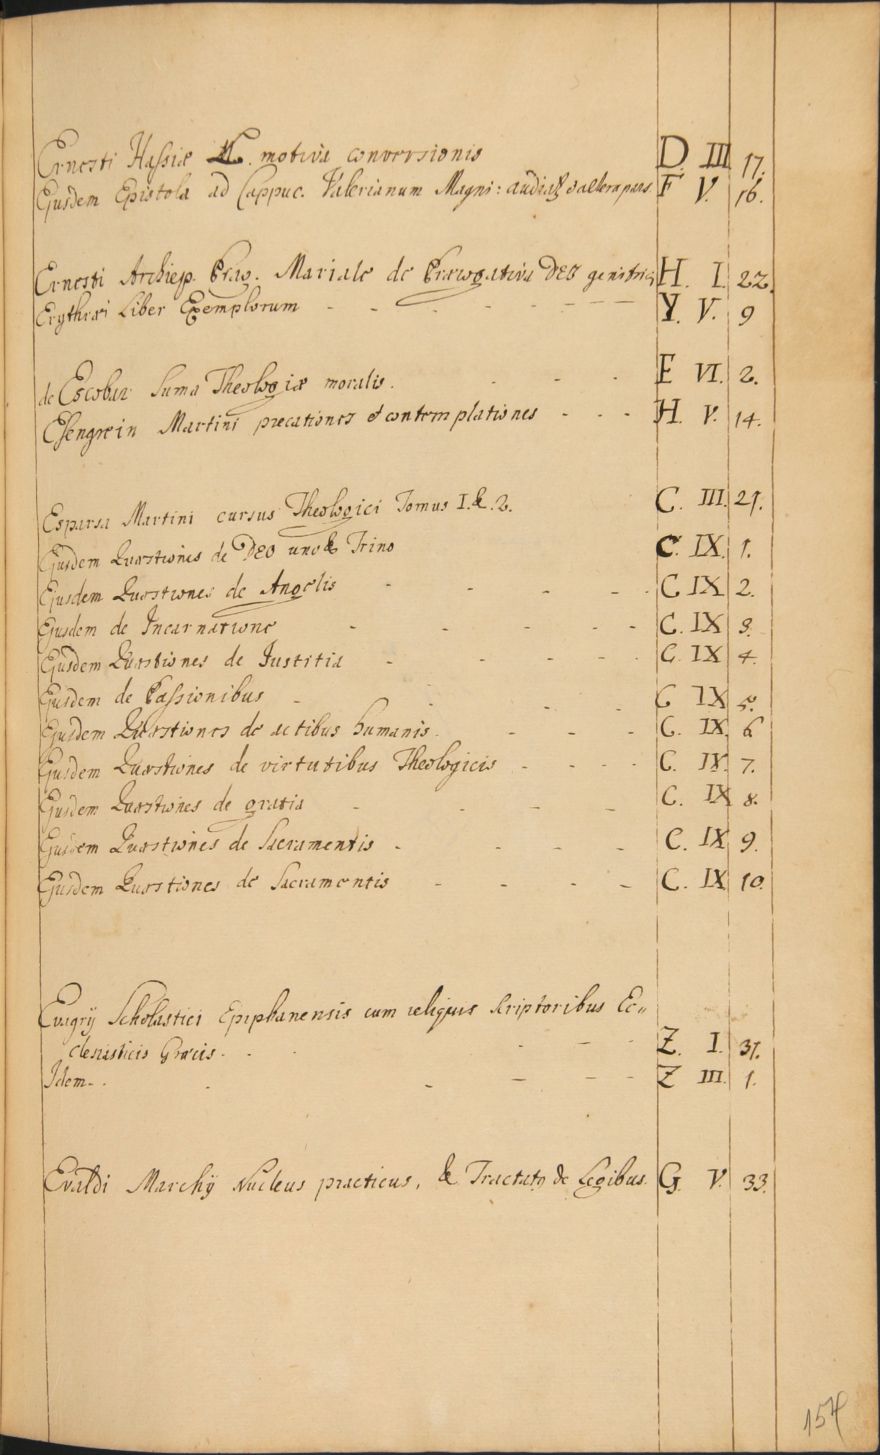 Ernesti Hassiæ L. motiva conversionis D. III 17.
Ejusdem Epistola ad Cappuc. Valerianum Magni: audiat & altera pars. F V. 16.
Ernesti Archiep. Prag. Mariale de Prærogativa DEO genitricis H. I. 22.
Erythræi Liber Exemplorum - - - - - - Y. V. 9
de Escobar Suma Theologiæ moralis. - - - E VI. 2.
Esengrein Martini precationes & contemplationes - - - H. V. 14.
Esparsa Martini cursus Theologici Tomus I. &. 2. C. III. 21.
Ejusdem Quæstiones de DEO uno & Trino C. IX. 1.
Ejusdem Quæstiones de Angelis - - - - C. IX. 2.
Ejusdem de Incarnatione - - - - - C. IX 3.
Ejusdem Quæstiones de Justitia - - - - C. IX 4.
Ejusdem de Passionibus - - - - C IX 5.
Ejusdem Quæstiones de actibus humanis. - - - C. IX. 6
Ejusdem Quæstiones de virtutibus Theologicis - - - - C. IX. 7.
Ejusdem Quæstiones de gratia - - - - C. IX 8.
Ejusdem Quæstiones de Sacramentis - - - - C. IX 9.
Ejusdem Quæstiones de Sacramentis - - - - C. IX 10.
Evagrij Scholastici Epiphanensis cum reliquis scriptoribus Ec„
clesiasticis Græcis. - - - - Z. I. 31.
Idem - - - - - - Z III. 1.
Evaldi Marchij Nucleus practicus, & Tractatq de Legibus. G. V. 33.
154